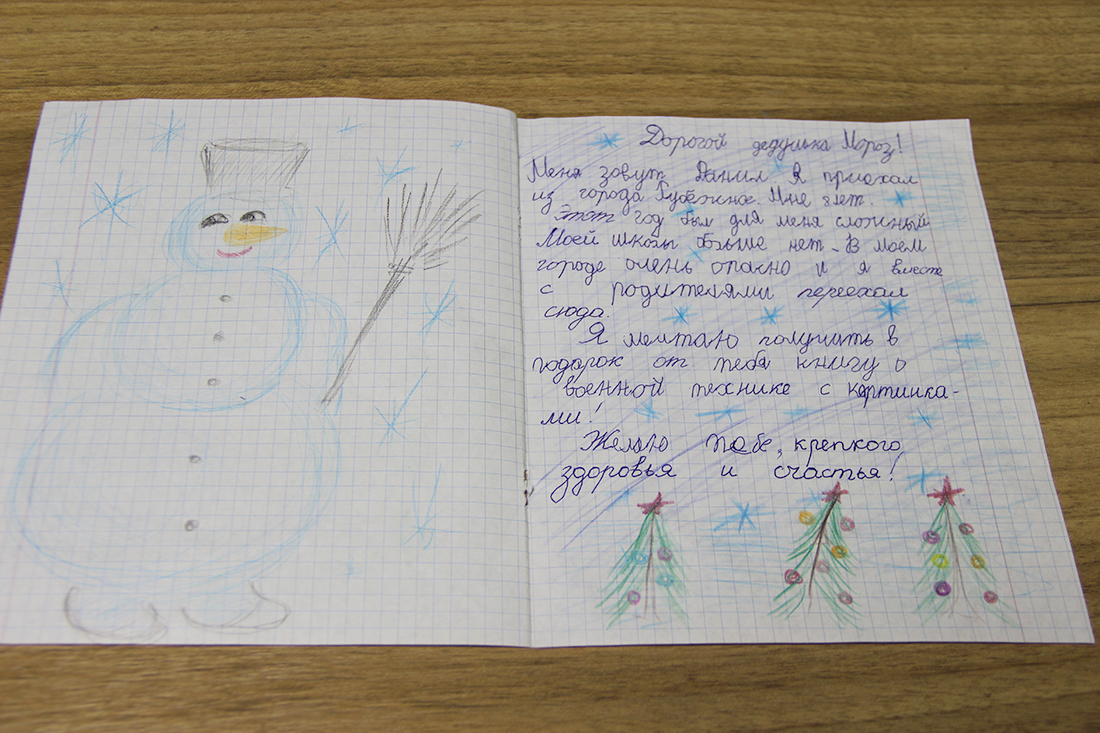 Дорогой дедушка Мороз!
Меня зовут Данил Я приехал
из города Рубежное. Мне 8 лет.
Этот год был для меня сложный
Моей школы больше нет. В моем
городе очень опасно и я вместе
с родителями переехал
сюда.
Я мечтаю получить в
подарок от тебя книгу о
военной технике с картинка-
ми!
Желаю тебе, крепкого
здоровья и счастья!